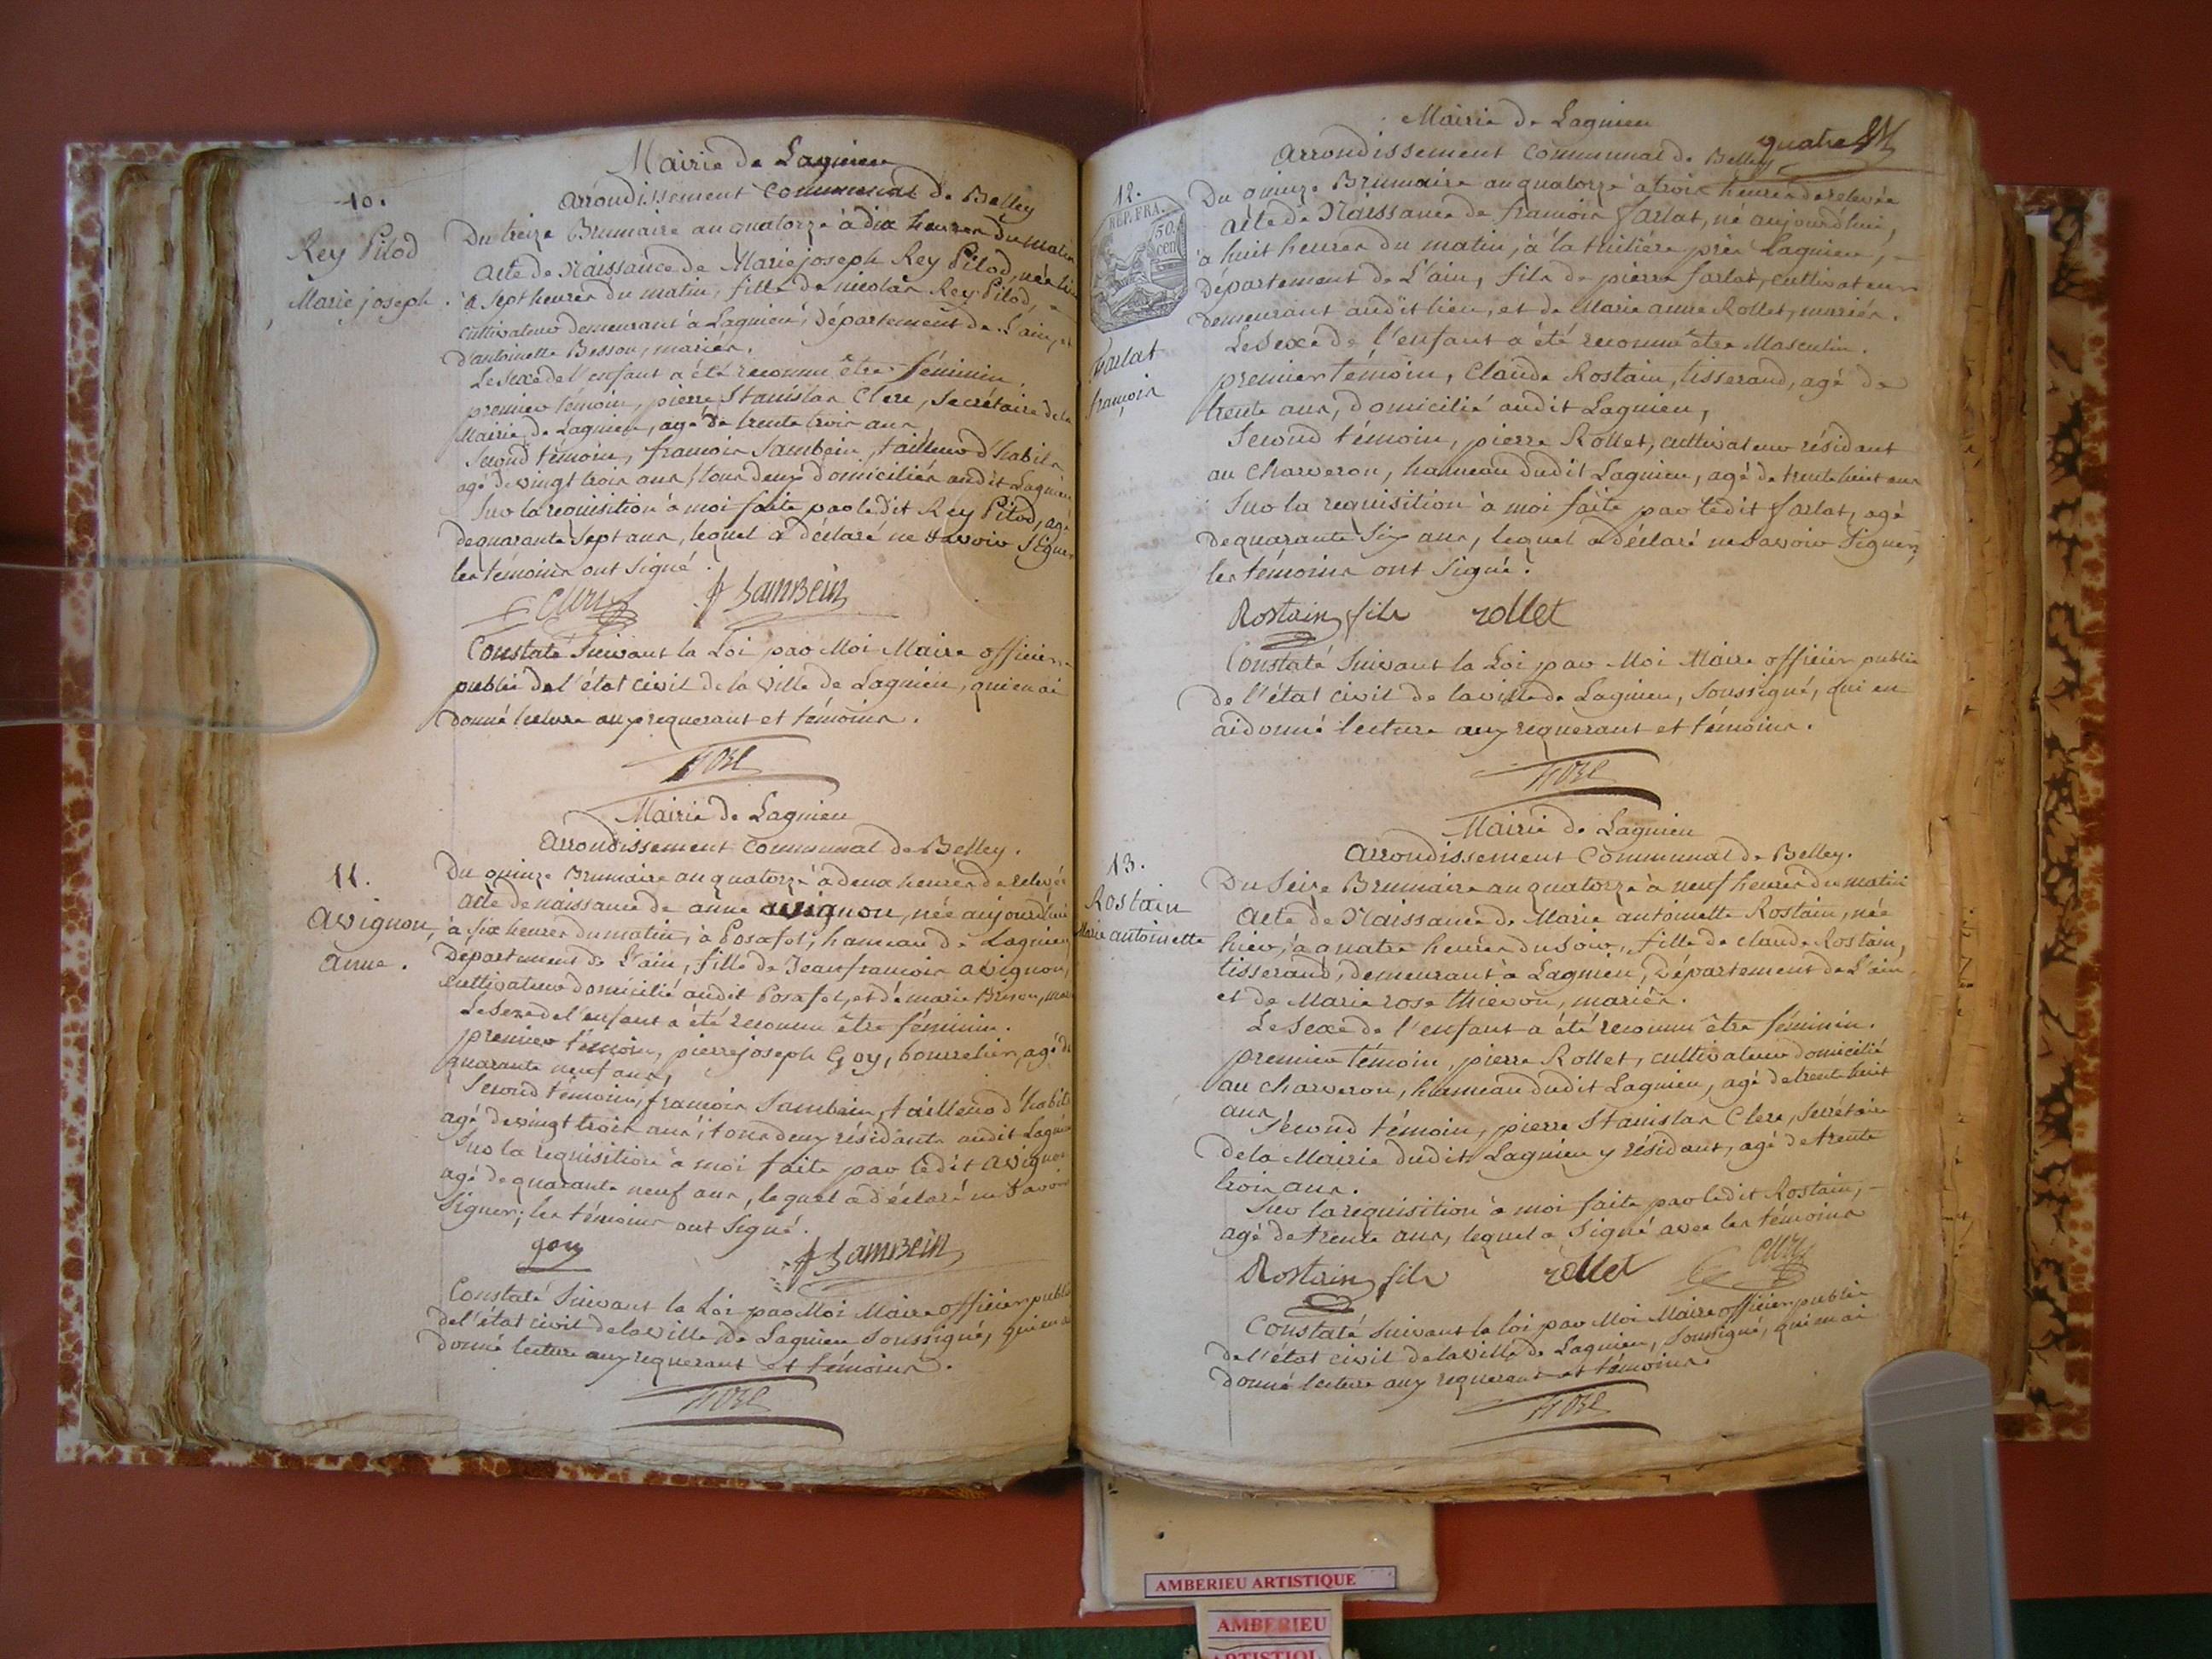 Mairie de Lagnieu
arrondissement Communal de Belley
10.
Rey Pilod
Marie joseph
Du treize Brumaire an quatorze à dix heures du matin
acte de Naissance de Marie joseph Rey Pilod, née hier
à Sept heures du matin, fille de nicolas Rey Pilod,
cultivateur demeurant à Lagnieu, département de L'ain, et
d'antoinette Besson, mariés.
Le sexe de l'enfant a été reconnu être féminin.
premier témoin, pierre Stanislas Clerc, Secrétaire de la
Mairie de Lagnieu, agé de trente trois ans,
Second témoin, françois Sambein, tailleur d'habits
agé de vingt trois ans, tous deux domiciliés audit Lagnieu
Sur la requisition à moi faite par ledit Rey Pilod, agé
de quarante Sept ans, lequel a déclaré ne savoir Signer
les témoins ont Signé.
f SamBein
Constaté Suivant la Loi par Moi Maire officier
public de l'état civil de la ville de Lagnieu, qui en ai
donné lecture aux requerant et témoins.
Mairie de Lagnieu
arrondissement Communal de Belley.
11.
avignon,
anne.
Du quinze Brumaire an quatorze à deux heures de relevée
acte de naissance de anne avignon, née aujourd'hui
à six heures du matin, à Posafol, hameau de Lagnieu
Département de L'ain, fille de Jean françois avignon,
cultivateur domicilié audit Posafol, et de marie
Le sexe de l'enfant a été reconnu être féminin.
premier témoin, pierre joseph Goy, bourrelier, agé de
quarante neuf ans,
Second témoin, françois Sambein, tailleur d'habits
agé de vingt trois ans, tous deux résidants audit Lagnieu
Sur la requisition à moi faite par ledit avignon
agé de quarante neuf ans, lequel a déclaré ne savoir
Signer; les témoins ont Signé.
goy f SamBein
Constaté Suivant la Loi par Moi Maire officier public
de l'état civil de la ville de Lagnieu Soussigné, qui en ai
donné lecture aux requerant et témoins.
Mairie de Lagnieu
quatre
arrondissement Communal de Belley
12.
REP. FRA.
50
cen
farlat
françois
Du quinze Brumaire an quatorze à trois heures de relevée
acte de Naissance de françois farlat, né aujourd'hui,
à huit heures du matin, à la thuiliére près Lagnieu,
Département de L'ain, fils de pierre farlat, cultivateur
demeurant audit lieu, et de Marie anne Rollet, mariés.
Le Sexe de l'enfant a été reconnu être Masculin.
premier témoin, Claude Rostain, tisserand, agé de
trente ans, domicilié audit Lagnieu,
Second témoin, pierre Rollet, cultivateur résidant
au Charveron, hameau dudit Lagnieu, agé de trente huit ans
Sur la requisition à moi faite par ledit farlat, agé
de quarante Six ans, lequel a déclaré ne savoir Signer,
les témoins ont Signé.
Rostain fils rollet
Constaté Suivant la Loi par Moi Maire officier public
de l'état civil de la ville de Lagnieu, Soussigné, qui en
ai donné lecture aux requerant et témoins.
Mairie de Lagnieu
arrondissement Communal de Belley.
13.
Rostain
Marie antoinette
Du Seize Brumaire an quatorze à neuf heures du matin
acte de Naissance de Marie antoinette Rostain, née
hier, à quatre heures du soir, fille de claude Rostain,
tisserand, demeurant à Lagnieu, Département de L'ain
et de Marie rose thievon, mariés.
Le sexe de l'enfant a été reconnu être féminin.
premier témoin, pierre Rollet, cultivateur domicilié
au charveron, hameau dudit Lagnieu, agé de trente huit
ans
Second témoin, pierre Stanislas Clerc, Secrétaire
de la Mairie dudit Lagnieu y résidant, agé de trente
trois ans.
Sur la requisition à moi faite par ledit Rostain,
agé de trente ans, lequel a Signé avec les témoins
Rostain fils rollet
Constaté Suivant la loi par Moi Maire officier public
de l'état civil de la ville de Lagnieu, Soussigné, qui en ai
donné lecture aux requerant et témoins.
AMBERIEU ARTISTIQUE
AMBERIEU